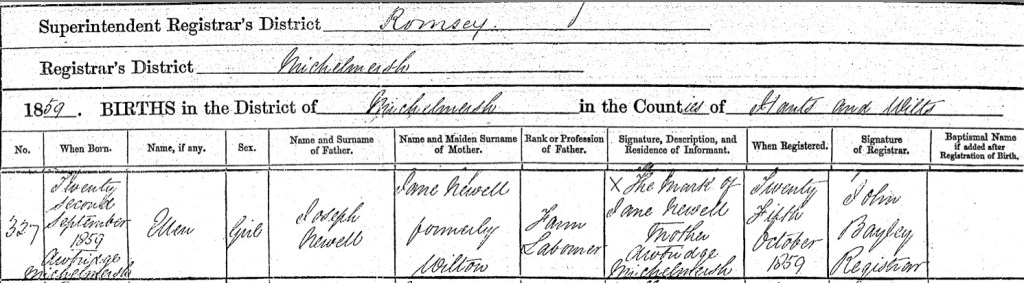 Superintendent Registrar's District Romsey.
Registrar's District Michelmersh
1859. BIRTHS in the District of Michelmersh in the Counties of Hants and Wilts
No. When Born. Name, if any. Sex. Name and Surname of Father. Name and Maiden Surname of Mother. Rank or Profession of Father. Signature, Description, and Residence of Informant. When Registered. Signature of Registrar. Baptismal Name if added after Registration of Birth.
327
Twenty
Second
September
1859
Awbridge
Michelmersh
Ellen
Girl
Joseph
Newell
Jane Newell
formerly
Wilton
Farm
Labourer
X The Mark of
Jane Newell
Mother
Awbridge
Michelmersh
Twenty
Fifth
October
1859
John
Bayley
Registrar